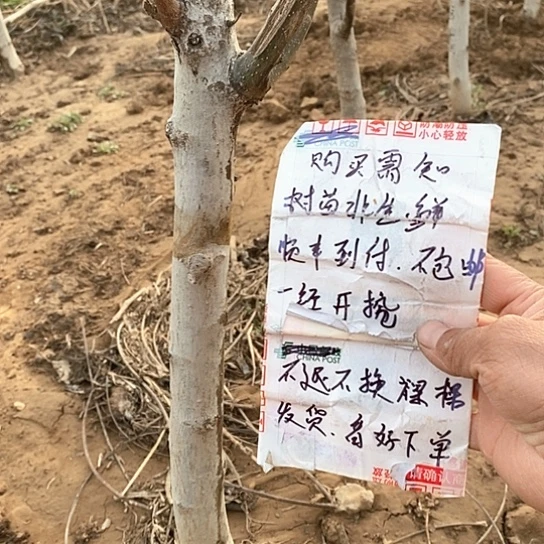 防潮防压
小心轻放
CHINA POST
购买需知
树苗非生鲜
顺丰到付.不包邮
一经开挠
CHINA POST
不退不换裸根
发货.看好下单
请确认